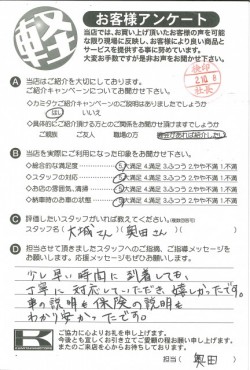 軽
お客様アンケート
当店では、お買い上げ頂いたお客様の声を可能
な限り現場に反映し、お客様により良い商品と
サービスを提供する事に努めています。
大変お手数ですが是非お声をお聞かせ下さい。
検印
2.10.8
社長
A 当店はご紹介を大切にしてます。
ご紹介キャンペーンについてお聞かせ下さい。
・カミタケご紹介キャンペーンのご説明はありましたでしょうか
はい いいえ
・具体的にご紹介頂ける方とのご関係をお聞かせ頂けますでしょうか
ご親族 ご友人 職場の方 機会があれば紹介したい
B 当店を実際にご利用になった印象をお聞かせ下さい。
・総合的な満足度 5大満足 4.満足 3.ふつう 2.やや不満 1.不満
・スタッフの対応 5大満足 4.満足 3.ふつう 2.やや不満 1.不満
・お店の雰囲気、清掃 5大満足 4.満足 3.ふつう 2.やや不満 1.不満
・納車時のお車の状態 5大満足 4.満足 3.ふつう 2.やや不満 1.不満
C 評価したいスタッフがいれば教えてください。(複数回答可)
スタッフ名( 大城さん )( 奥田さん )
D 担当させて頂きましたスタッフへのご指摘、ご指導メッセージを
お願いします。応援メッセージもぜひお願いします。
少し早い時間に到着しても、
丁寧に対応していただき嬉しかったです。
車の説明も保険の説明も
わかり安かったですっ。
K
ご協力に心よりお礼を申し上げます。
今後とも宜しくお引き立てご愛顧の程お願い申し上げます。
またのご来店を心からお待ちしております。
担当( 奥田 )